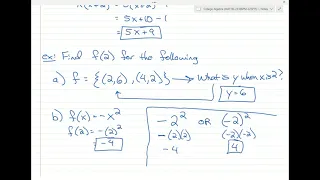 = 5(x+2) - 1
= 5x+10 - 1
= 5x+9
ex: Find f(2) for the following
a) f = {(2,6), (4,2)} → What is y when x is 2?
y=6
b) f(x) = -x²
f(2) = -(2)²
= -4
-2² OR (-2)²
-(2)(2) (-2)(-2)
-4 4